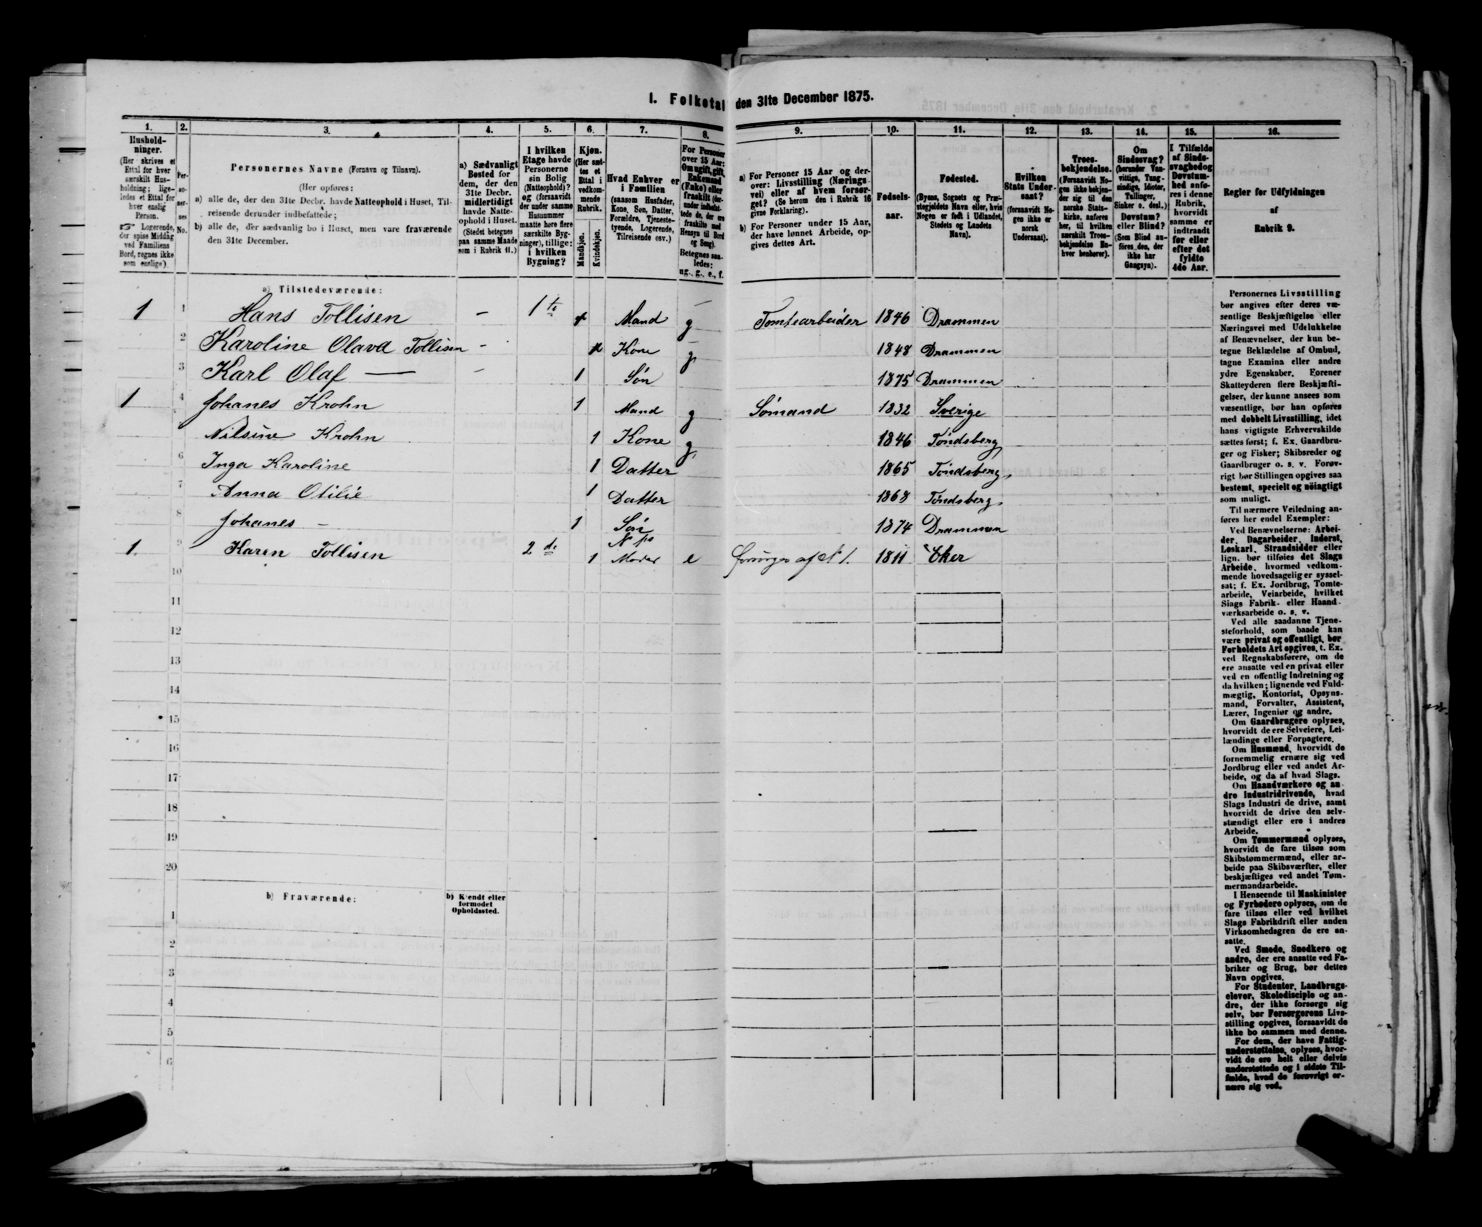 I. Folketal den 31te December 1875.
1. 2. 3. 4. 5. 6. 7. 8. 9. 10. 11. 12. 13. 14. 15. 16.
Hushold-
ninger.
(Her skrives et
Ettal for hver
særskilt Hus-
holdning; lige-
ledes et Ettal for
hver enslig
Person.
☞ Logerende,
der spise Middag
ved Familiens
Bord, regnes ikke
som enslige).
Per-
so-
ner-
nes
No.
Personernes Navne (Fornavn og Tilnavn).
(Her opføres:
a) alle de, der den 31te Decbr. havde Natteophold i Huset, Til-
reisende derunder indbefattede;
b) alle de, der sædvanlig bo i Huset, men vare fraværende
den 31te December.
a) Sædvanligt
Bosted for
dem, der den
31te Decbr.
midlertidigt
havde Natte-
ophold i Huset.
(Stedet betegnes
paa samme Maade
som i Rubrik 11.)
I hvilken
Etage havde
Personerne
sin Bolig
(Natteophold)?
og (forsaavidt
der under samme
Husnummer
maatte høre flere
særskilte Byg-
ninger), tillige:
i hvilken
Bygning?
Kjøn.
(Her sæt-
tes et
Ettal i
vedkom-
mende
Rubrik.
Mandkjøn.
Kvindekjøn.
Hvad Enhver er
i Familien
(saasom Husfader,
Kone, Søn, Datter,
Forældre, Tjeneste-
tyende, Logerende,
Tilreisende osv.)
For Personer
over 15 Aar:
Om ugift, gift,
Enkemand
(Enke) eller
fraskilt
Betegnes saa-
ledes:
ug., g., e., f.
a) For Personer 15 Aar og der-
over: Livsstilling (Nærings-
vei) eller af hvem forsør-
get? (Se herom den i Rubrik 16
givne Forklaring).
b) For Personer under 15 Aar,
der have lønnet Arbeide, op-
gives dettes Art.
Fødsels-
aar.
Fødested.
(Byens, Sognets og Præ-
stegjeldets Navn eller, hvis
Nogen er født i Udlandet,
Stedets og Landets
Navn).
Hvilken
Stats Under-
saat?
(forsaavidt No-
gen ikke er
norsk
Undersaat).
Troes-
bekjendelse.
(Forsaavidt No-
gen ikke bekjen-
der sig til den
norske Stats-
kirke, anføres
her, til hvilken
særskilt Troes-
bekjendelse En-
hver henhører).
Om
Sindssvag?
(herunder Van-
vittige, Tung-
sindige, Idioter,
Sinker o. desl.)
Døvstum?
eller Blind?
(Som Blind an-
føres den, der
ikke har
Gangsyn).
I Tilfælde
af Sinds-
svaghed og
Døvstum-
hed anfø-
res i denne
Rubrik,
hvorvidt
samme er
indtraadt
før eller
efter det
fyldte
4de Aar.
Regler for Udfyldningen
af
Rubrik 9.
a) Tilstedeværende:
1 1 Hans Tollisen – 1te Mand g Tomtearbeider 1846 Drammen
2 Karoline Olava Tollisen – Kone g 1848 Drammen
3 Karl Olaf — – 1 Søn 1875 Drammen
1 4 Johanes Krohn 1 Mand g Sømand 1832 Sverige
Nilsine Krohn 1 Kone g 1846 Tøndsberg
6 Inga Karoline 1 Datter 1865 Tøndsberg
7 Anna Otilie 1 Datter 1868 Tøndsberg
8 Johanes – 1 Søn 1874 Drammen
1. 9 Karen Tollisen 2de 1 Moder e 1811 Eker
10
11
12
13
14
15
16
17
18
19
20
b) Fraværende:
b) Kjendt eller
formodet
Opholdssted.
1
2
3
4
5
6
Personernes Livsstilling
bør angives efter deres væ-
sentlige Beskjæftigelse eller
Næringsvei med Udelukkelse
af Benævnelser, der kun be-
tegne Beklædelse af Ombud,
tagne Examina eller andre
ydre Egenskaber. Forener
Skatteyderen flere Beskjæfti-
gelser, der kunne ansees som
væsentlige, bør han opføres
med dobbelt Livsstilling, idet
hans vigtigste Erhvervskilde
sættes først; f. Ex. Gaardbru-
ger og Fisker; Skibsreder og
Gaardbruger o. s. v. Forøv-
rigt bør Stillingen opgives saa
bestemt, specielt og nöiagtigt
som muligt.
Til nærmere Veiledning an-
føres her endel Exempler:
Ved Benævnelserne: Arbei-
der, Dagarbeider, Inderst,
Løskarl, Strandsidder eller
lign. bør tilføies det Slags
Arbeide, hvormed vedkom-
mende hovedsagelig er syssel-
sat; f. Ex. Jordbrug, Tomte-
arbeide, Veiarbeide, hvilket
Slags Fabrik- eller Haand-
værksarbeide o. s. v.
Ved alle saadanne Tjene-
steforhold, som baade kan
være privat og offentligt, bør
Forholdets Art opgives, t. Ex.
ved Regnskabsførere, om de
ere ansatte ved en privat eller
ved en offentlig Indretning og
da hvilken; lignende ved Fuld-
mægtig, Kontorist, Opsyns-
mand, Forvalter, Assistent,
Lærer, Ingeniør og andre.
Om Gaardbrugere oplyses,
hvorvidt de ere Selveiere, Lei-
lændinge eller Forpagtere.
Om Husmænd, hvorvidt de
fornemmelig ernære sig ved
Jordbrug eller ved andet Ar-
beide, og da af hvad Slags.
Om Haandværkere og an-
dre Industridrivende, hvad
Slags Industri de drive, samt
hvorvidt de drive den selv-
stændigt eller ere i andres
Arbeide.
Om Tømmermænd oplyses,
hvorvidt de fare tilsøs som
Skibstømmermænd, eller ar-
beide paa Skibsværfter, eller
beskjæftiges ved andet Tøm-
mermandsarbeide.
I Henseende til Maskinister
og Fyrbødere oplyses, om de
fare tilsøs eller ved hvilket
Slags Fabrikdrift eller anden
Virksomhedsgren de ere an-
satte.
Ved Smede, Snedkere og
andre, der ere ansatte ved Fa-
briker og Brug, bør dettes
Navn opgives.
For Studenter, Landbrugs-
elever, Skoledisciple og an-
dre, der ikke forsørge sig
selv, bør Forsørgerens Livs-
stilling opgives, forsaavidt de
ikke bo sammen med denne.
For dem, der have Fattig-
understøttelse, oplyses, hvor-
vidt de ere helt eller delvis
understøttede og i sidste Til-
fælde, hvad de forøvrigt er-
nære sig ved.